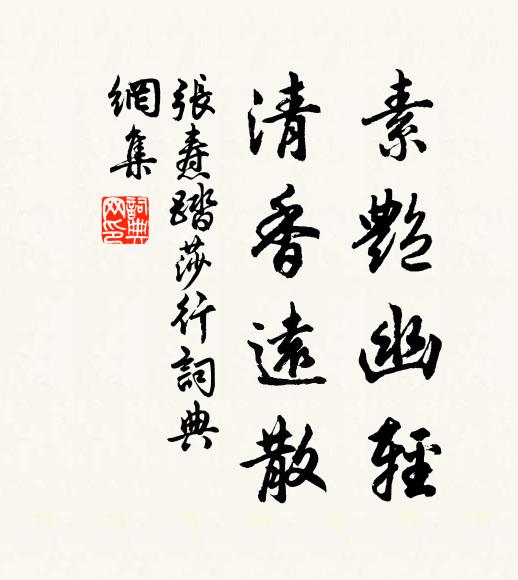 素艷幽輕
清香遠散
張燾踏莎行詞典
網集
詞典
网印